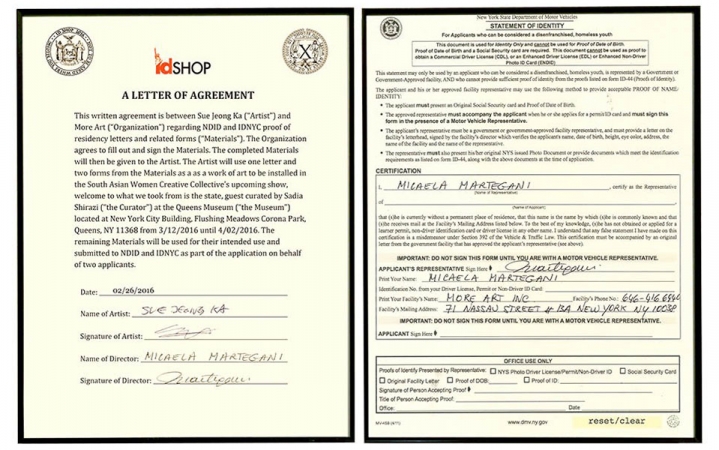 idSHOP
A LETTER OF AGREEMENT
This written agreement is between Sue Jeong Ka ("Artist") and
More Art ("Organization") regarding NDID and IDNYC proof of
residency letters and related forms ("Materials"). The Organization
agrees to fill out and sign the Materials. The completed Materials
will then be given to the Artist. The Artist will use one letter and
two forms from the Materials as a as a work of art to be installed in
the South Asian Women Creative Collective's upcoming show,
welcome to what we took from is the state, guest curated by Sadia
Shirazi ("the Curator") at the Queens Museum ("the Museum")
located at New York City Building, Flushing Meadows Corona Park,
Queens, NY 11368 from 3/12/2016 until 4/02/2016. The
remaining Materials will be used for their intended use and
submitted to NDID and IDNYC as part of the application on behalf
of two applicants.
Date: 02/26/2016
Name of Artist: SUE JEONG KA
Signature of Artist:
Name of Director: MICAELA MARTEGANI
Signature of Director:
New York State Department of Motor Vehicles
STATEMENT OF IDENTITY
For Applicants who can be considered a disenfranchised, homeless youth
This document is used for Identity Only and cannot be used for Proof of Date of Birth.
Proof of Date of Birth and a Social Security card are required. This document cannot be used as proof to
obtain a Commercial Driver License (CDL), or an Enhanced Driver License (EDL) or Enhanced Non-Driver
Photo ID Card (ENDID)
This statement may only be used by an applicant who can be considered a disenfranchised, homeless youth, is represented by a Government or
Government-Approved facility, AND who cannot provide sufficient proof of identity from the proofs listed on form ID-44 (Proofs of Identity).
The applicant and his or her approved facility representative may use the following method to provide acceptable PROOF OF NAME/
IDENTITY:
• The applicant must present an Original Social Security card and Proof of Date of Birth.
• The approved representative must accompany the applicant when he or she applies for a permit/ID card and must sign this
form in the presence of a Motor Vehicle Representative.
• The applicant's representative must be a government or government-approved facility representative, and must provide a letter on the
facility's letterhead, signed by the facility's director which verifies the applicant's name, date of birth, height, eye color, address, the
name of the facility and the name of the representative.
• The representative must also present his/her original NYS issued Photo Document or provide documents which meet the identification
requirements as listed on form ID-44, along with the above documents at the time of application.
CERTIFICATION
I, MICAELA MARTEGANI, certify as the Representative
(Name of Representative)
of
(Name of Applicant)
that (s)he is currently without a permanent place of residence, that this name is the name by which (s)he is commonly known and that
(s)he receives mail at the Facility's Mailing Address listed below. To the best of my knowledge, (s)he has not obtained or applied for a
learner permit, non-driver identification card or driver license under any other name. I understand that any false statement I have made on this
certification is a misdemeanor under Section 392 of the Vehicle & Traffic Law. This certification must be accompanied by an original
letter from the government facility that has approved the applicant's representative (see above).
IMPORTANT: DO NOT SIGN THIS FORM UNTIL YOU ARE WITH A MOTOR VEHICLE REPRESENTATIVE.
APPLICANT'S REPRESENTATIVE Sign Here
Print Your Name: MICAELA MARTEGANI
Identification No. from your Driver License, Permit or Non-Driver ID Card:
Print Your Facility's Name: MORE ART INC Facility's Phone No.:
Facility's Mailing Address: 71 NASSAU STREET # 13A NEW YORK NY 10038
IMPORTANT: DO NOT SIGN THIS FORM UNTIL YOU ARE WITH A MOTOR VEHICLE REPRESENTATIVE.
APPLICANT Sign Here
OFFICE USE ONLY
Proofs of Identity Presented by Representative: NYS Photo Driver License/Permit/Non-Driver ID Social Security Card
Original Facility Letter Proof of DOB: Proof of ID:
Signature of Person Accepting Proof
Title of Person Accepting Proof:
Office: Date
www.dmv.ny.gov reset/clear